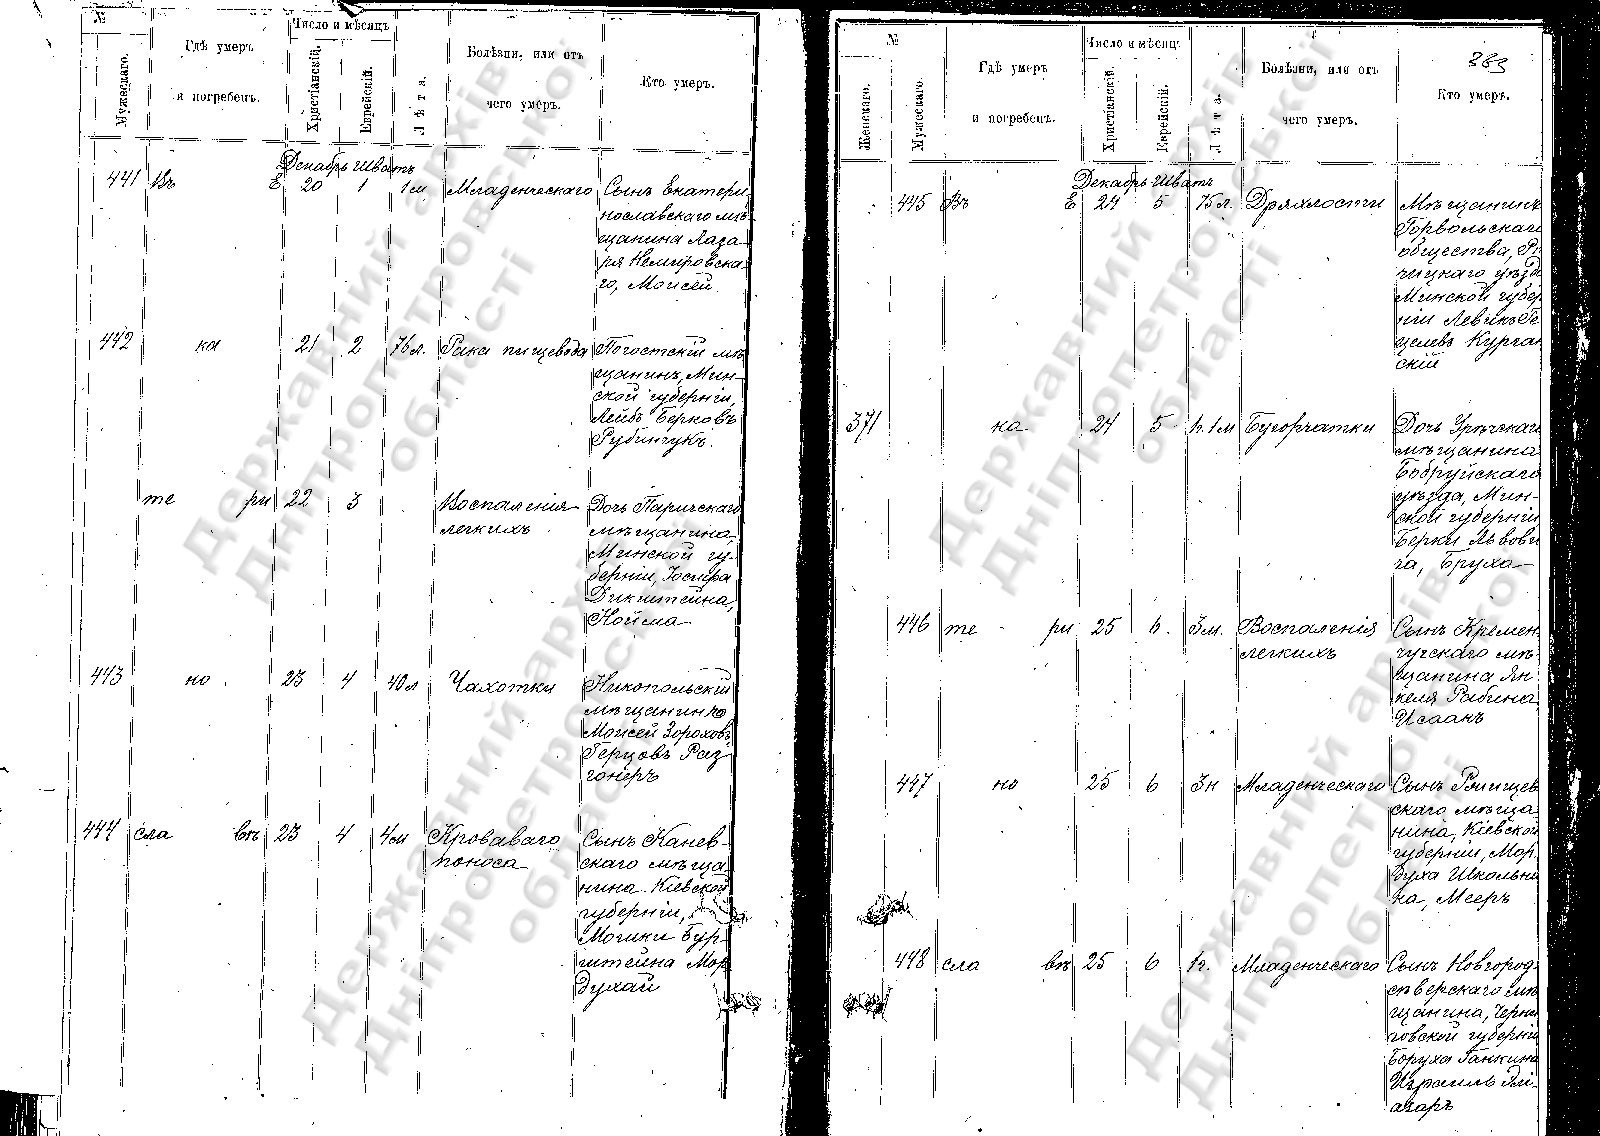 №
Мужескаго.
Гдѣ умеръ
и погребенъ.
Число и мѣсяцъ
Христіанскій.
Еврейскій.
Лѣта.
Болѣзни, или отъ
чего умеръ.
Кто умеръ.
Декабрь Шватъ
441 Въ Е 20 1 1м Младенческаго Сынъ Екатери
нославскаго мѣ
щанина Лаза-
ря Немировска-
го, Моисей.
442 ка 21 2 76л. Рака пищевода Погостскій мѣ
щанинъ, Мин-
ской губерніи,
Лейбъ Берковъ
Рубинчукъ.
те ри 22 3 Воспаленія Дочь Паричскаго
легкихъ мѣщанина,
Минской гу-
берніи, Іосифа
Дикштейна,
Нойма
443 но 23 4 40л Чахотки Никопольскій
мѣщанинъ
Моисей Зороховъ
Герцовъ Раз
гонеръ
444 сла въ 23 4 4м Кроваваго Сынъ Канев-
поноса скаго мѣща
нина Кіевской
губерніи,
Мошки Бур-
штейна Мор
духай
№
Женскаго.
Мужескаго.
Гдѣ умеръ
и погребенъ.
Число и мѣсяцъ
Христіанскій.
Еврейскій.
Лѣта.
Болѣзни, или отъ
чего умеръ.
383
Кто умеръ.
Декабрь Шватъ
445 Въ Е 24 5 75л. Дряхлости Мѣщанинъ
Горвольскаго
общества, Рѣ
чицкаго уѣзда
Минской губер
ніи Левикъ Ге
целевъ Курган
скій
371 ка 24 5 1г.1м Бугорчатки Дочь Урѣчскаго
мѣщанина
Бобруйскаго
уѣзда, Мин-
ской губерніи
Берки Львови
ча, Бруха
446 те ри 25 6. 3м. Воспаленія Сынъ Кремен
легкихъ чугскаго мѣ
щанина Ян
келя Рабина
Исаакъ
447 но 25 6 3н Младенческаго Сынъ Ржищев
скаго мѣща
нина, Кіевской
губерніи, Мор
духа Школьни
ка, Мееръ
448 сла въ 25 6 1г. Младенческаго Сынъ Новгород
сѣверскаго мѣ
щанина, Черни
говской губерніи
Боруха Ганкина
Израиль Элі-
азаръ
Державний архів
Дніпропетровської
області
Державний архів
Дніпропетровської
області
Державний архів
Дніпропетровської
області
Державний архів
Дніпропетровської
області